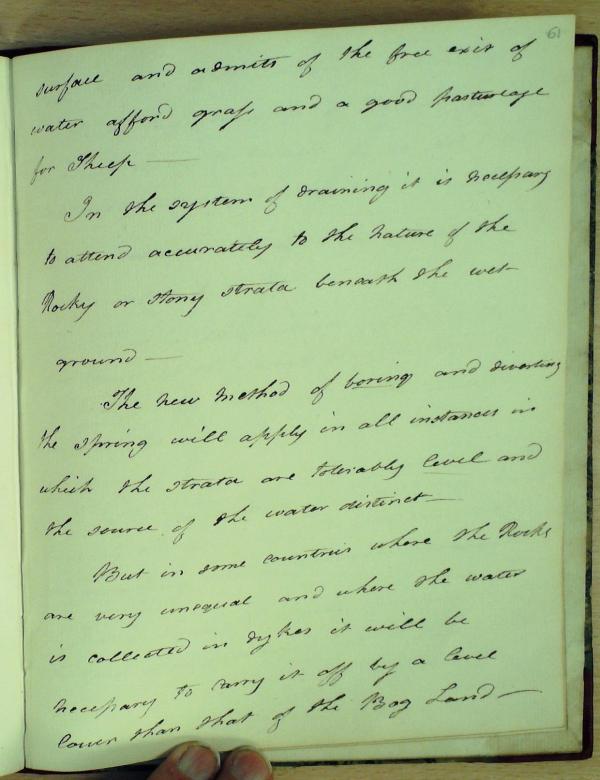 61
surface and admits of the free exit of
water afford grass and a good pasturage
for Sheep —
In the system of draining it is necessary
to attend accurately to the nature of the
Rocky or stony strata beneath the wet
ground —
The new method of boring and diverting
the spring will apply in all instances in
which the strata are tolerably level and
the source of the water distinct —
But in some countries where the Rocks
are very unequal and where the water
is collected in dykes it will be
necessary to carry it off by a level
lower than that of the Bog Land —